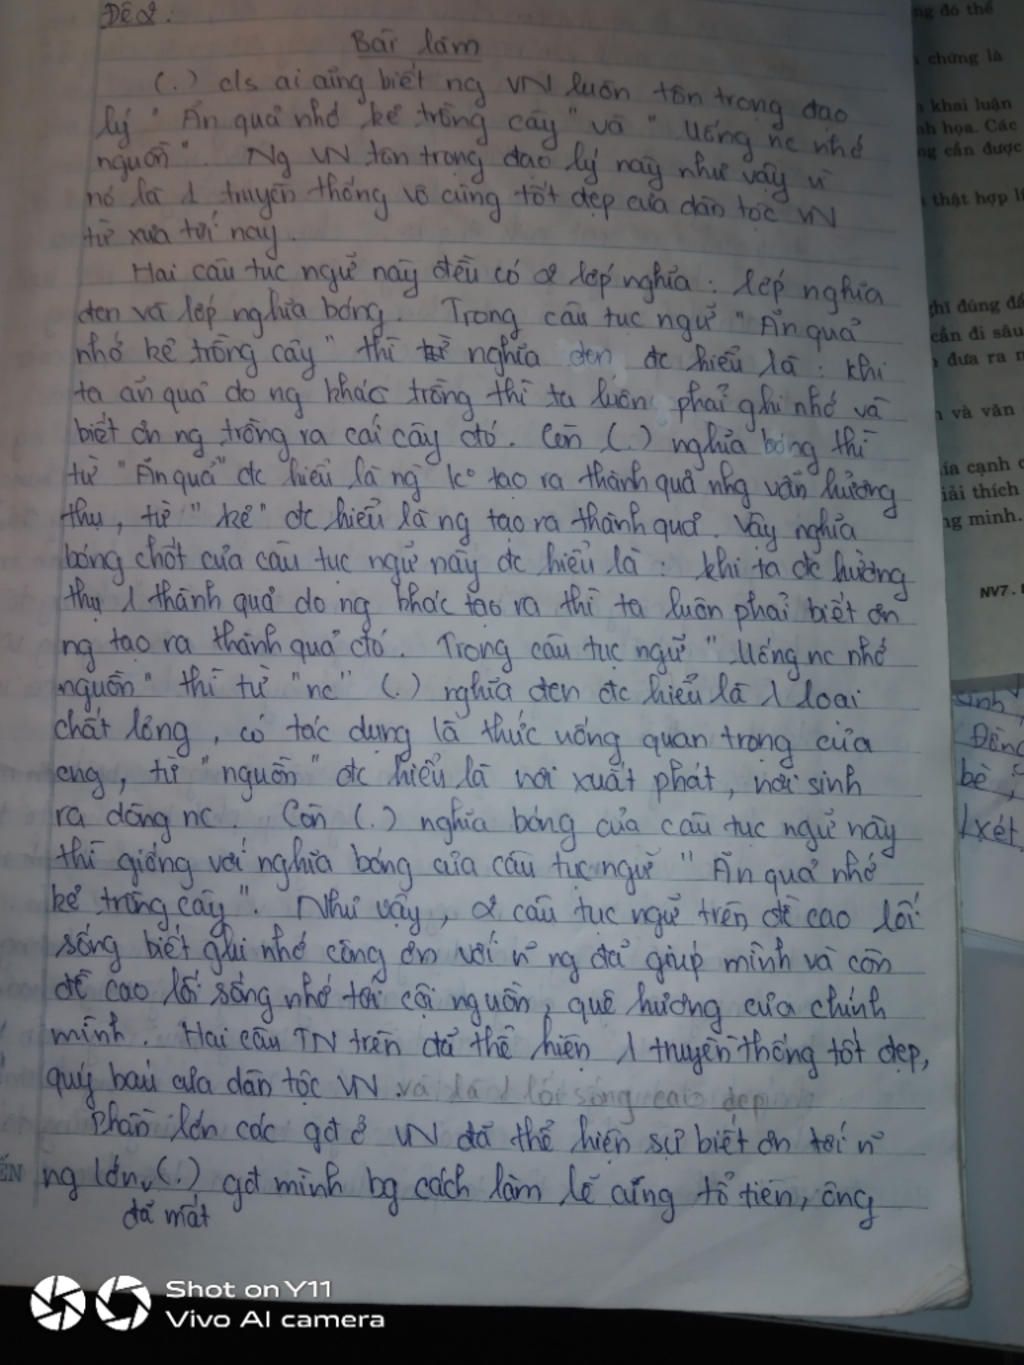 Đề 2.
Bài làm
(.) cls ai cũng biết ng VN luôn tôn trọng đạo
lý " Ăn quả nhớ kẻ trồng cây " và " Uống nc nhớ
nguồn ". Ng VN tôn trọng đạo lý này như vậy vì
nó là 1 truyền thống vô cùng tốt đẹp của dân tộc VN
từ xưa tới nay.
Hai câu tục ngữ này đều có 2 lớp nghĩa : lớp nghĩa
đen và lớp nghĩa bóng. Trong câu tục ngữ " Ăn quả
nhớ kẻ trồng cây " thì nghĩa đen đc hiểu là : khi
ta ăn quả do ng khác trồng thì ta luôn phải ghi nhớ và
biết ơn ng trồng ra cái cây đó. Còn (.) nghĩa bóng thì
từ " Ăn quả " đc hiểu là ng k° tạo ra thành quả nhg vẫn hưởng
thụ, từ " kẻ " đc hiểu là ng tạo ra thành quả. Vậy nghĩa
bóng chốt của câu tục ngữ này đc hiểu là : khi ta đc hưởng
thụ 1 thành quả do ng khác tạo ra thì ta luôn phải biết ơn
ng tạo ra thành quả đó. Trong câu tục ngữ " Uống nc nhớ
nguồn " thì từ " nc " (.) nghĩa đen đc hiểu là 1 loại
chất lỏng, có tác dụng là thức uống quan trọng của
cng, từ " nguồn " đc hiểu là nơi xuất phát, nơi sinh
ra dòng nc. Còn (.) nghĩa bóng của câu tục ngữ này
thì giống với nghĩa bóng của câu tục ngữ " Ăn quả nhớ
kẻ trồng cây ". Như vậy, 2 câu tục ngữ trên đề cao lối
sống biết ghi nhớ công ơn với n~ ng đã giúp mình và còn
đề cao lối sống nhớ tới cội nguồn, quê hương của chính
mình. Hai câu TN trên đã thể hiện 1 truyền thống tốt đẹp,
quý báu của dân tộc VN và là 1 lối sống cao đẹp
Phần lớn các gđ ở VN đã thể hiện sự biết ơn tới n~
ng lớn (.) gđ mình bg cách làm lễ cúng tổ tiên, ông
đã mất
ng đó thể
chứng là
khai luận
nh họa. Các
ng cần được
thật hợp l
ghĩ đúng đ
cần đi sâu
đưa ra
và văn
ía cạnh
iải thích
ng minh.
NV7.
sinh
Đồng
bè
xét
ẾN
Shot on Y11
Vivo AI camera